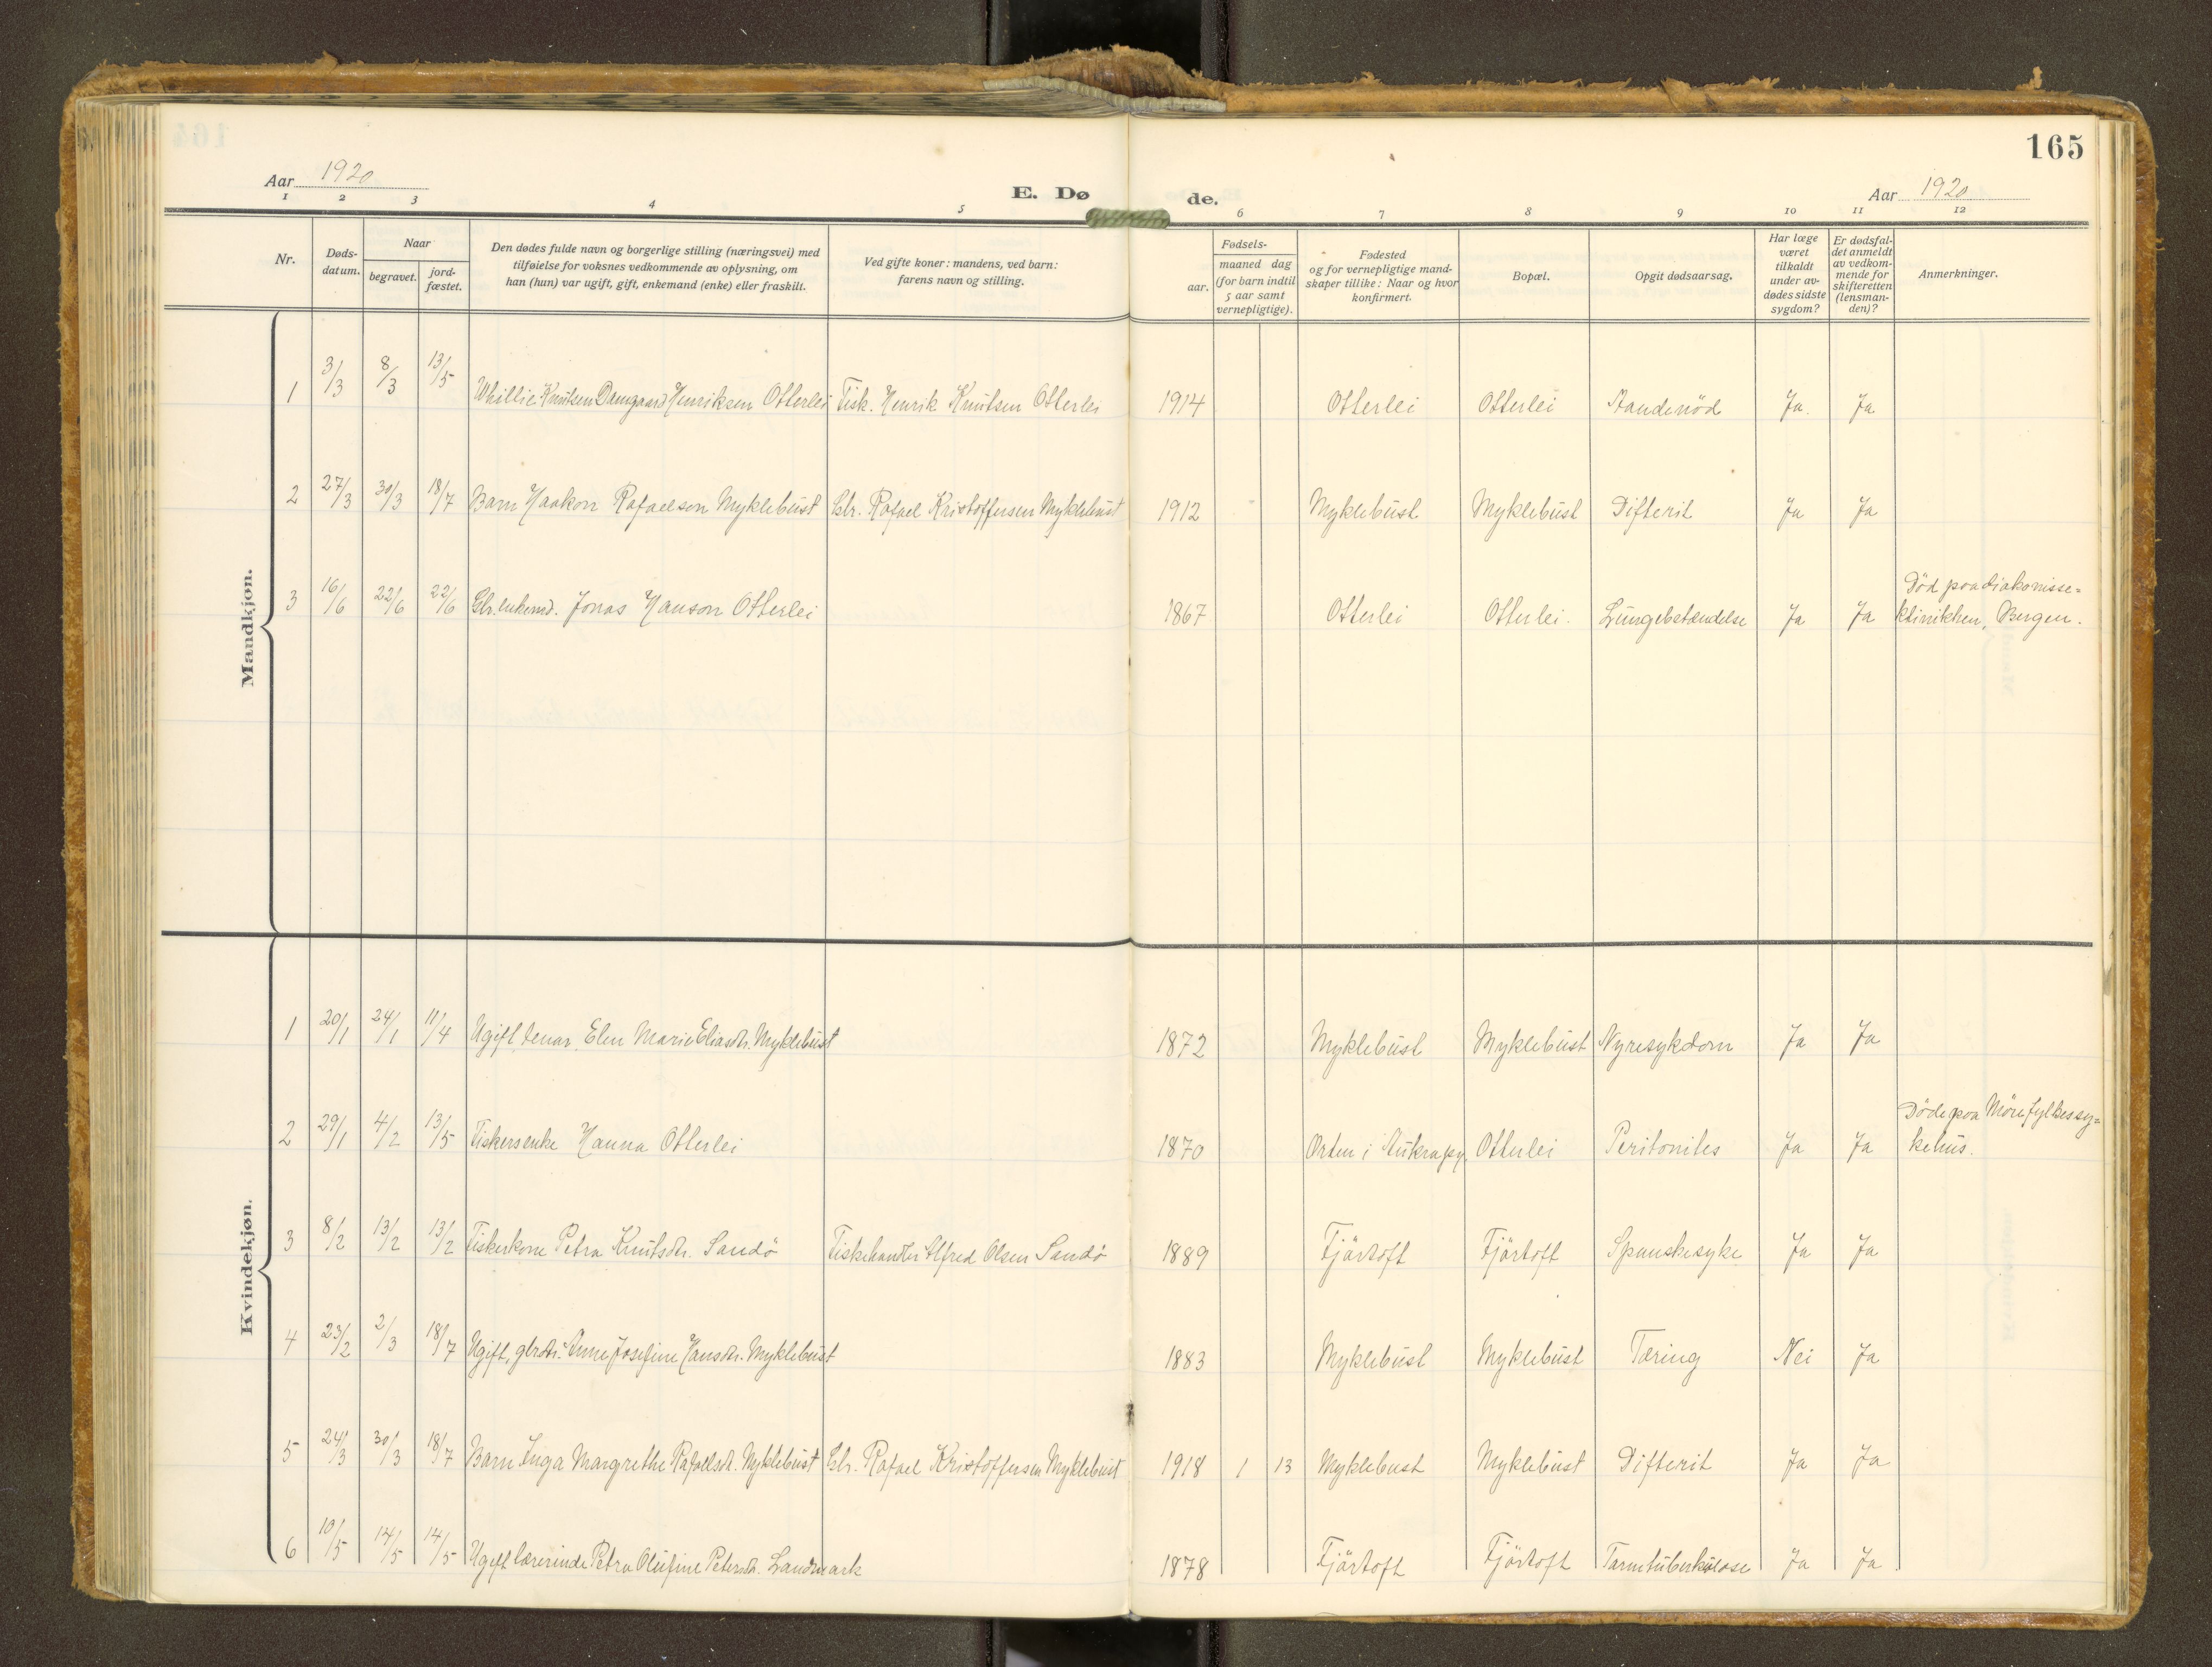 165
Aar 1920
E. Døde.
Aar 1920
1 2 3 4 5 6 7 8 9 10 11 12
Nr.
Døds-
datum.
Naar
begravet.
jord-
fæstet.
Den dødes fulde navn og borgerlige stilling (næringsvei) med
tilføielse for voksnes vedkommende av oplysning, om
han (hun) var ugift, gift, enkemand (enke) eller fraskilt.
Ved gifte koner: mandens, ved barn:
farens navn og stilling.
Fødsels-
aar.
maaned dag
(for barn indtil
5 aar samt
vernepligtige).
Fødested
og for vernepligtige mand-
skaper tillike: Naar og hvor
konfirmert.
Bopæl.
Opgit dødsaarsag.
Har læge
været
tilkaldt
under av-
dødes sidste
sygdom?
Er dødsfal-
det anmeldt
av vedkom-
mende for
skifteretten
(lensman-
den)?
Anmerkninger.
Mandkjøn.
1 3/3 8/3 13/5 Whillie Knutsen Damgaard Henriksen Otterlei Fisk. Henrik Knutsen Otterlei 1914 Otterlei Otterlei Aandenöd Ja. Ja
2 27/3 30/3 18/7 Barn Haakon Rafaelsen Myklebust Gbr. Rafael Kristoffersen Myklebust 1912 Myklebust Myklebust Difterit Ja Ja
3 16/6 22/6 22/6 Gbr. enkemd. Jonas Hanson Otterlei 1867 Otterlei Otterlei. Lungebetændelse Ja Ja Död paa diakonisse-
klinikken, Bergen.
Kvindekjøn.
1 20/1 24/1 11/4 Ugift, tenar, Elen Marie Eliasdtr. Myklebust 1872 Myklebust Myklebust Nyresykdom Ja Ja
2 29/1 4/2 13/5 Fiskersenke Hanna Otterlei 1870 Orten i Aukra pgj. Otterlei Peritonites Ja Ja Döde paa Möre fylkessy-
kehus.
3 8/2 13/2 13/2 Fiskerkone Petra Knutsdtr. Sandö Fiskehandler Alfred Olsen Sandö 1889 Fjärtoft Fjärtoft Spanskesyke Ja Ja
4 23/2 2/3 18/7 Ugift, gbrdtr. Anne Josefine Hansdtr. Myklebust 1883 Myklebust Myklebust Tæring Nei Ja
5 24/3 30/3 18/7 Barn Inga Margrethe Rafaelsdt. Myklebust Gbr. Rafael Kristoffersen Myklebust 1918 1 13 Myklebust Myklebust Difterit Ja Ja
6 10/5 14/5 14/5 Ugift lærerinde Petra Olufine Petersdtr. Landmark 1878 Fjärtoft Fjärtoft Tarmtuberkulose Ja Ja